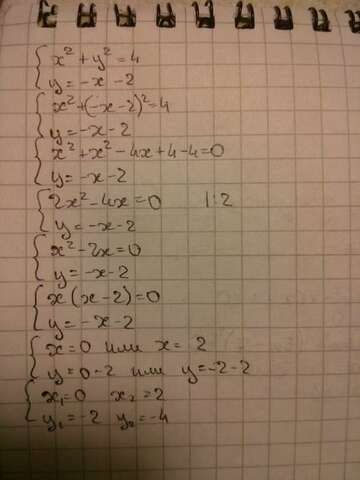 x² + y² = 4
y = -x - 2
x² + (-x - 2)² = 4
y = -x - 2
x² + x² - 4x + 4 - 4 = 0
y = -x - 2
2x² - 4x = 0 |:2
y = -x - 2
x² - 2x = 0
y = -x - 2
x(x - 2) = 0
y = -x - 2
x = 0 или x = 2
y = 0 - 2 или y = -2 - 2
x₁ = 0 x₂ = 2
y₁ = -2 y₂ = -4